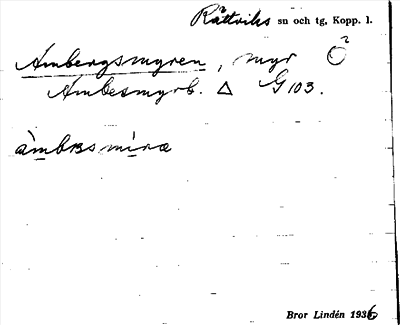 Rättviks sn och tg, Kopp. l.
Ambergsmyren, myr Ö²
Ambesmyrb. △ G 103.
àmbɐsmìræ
Bror Lindén 1936